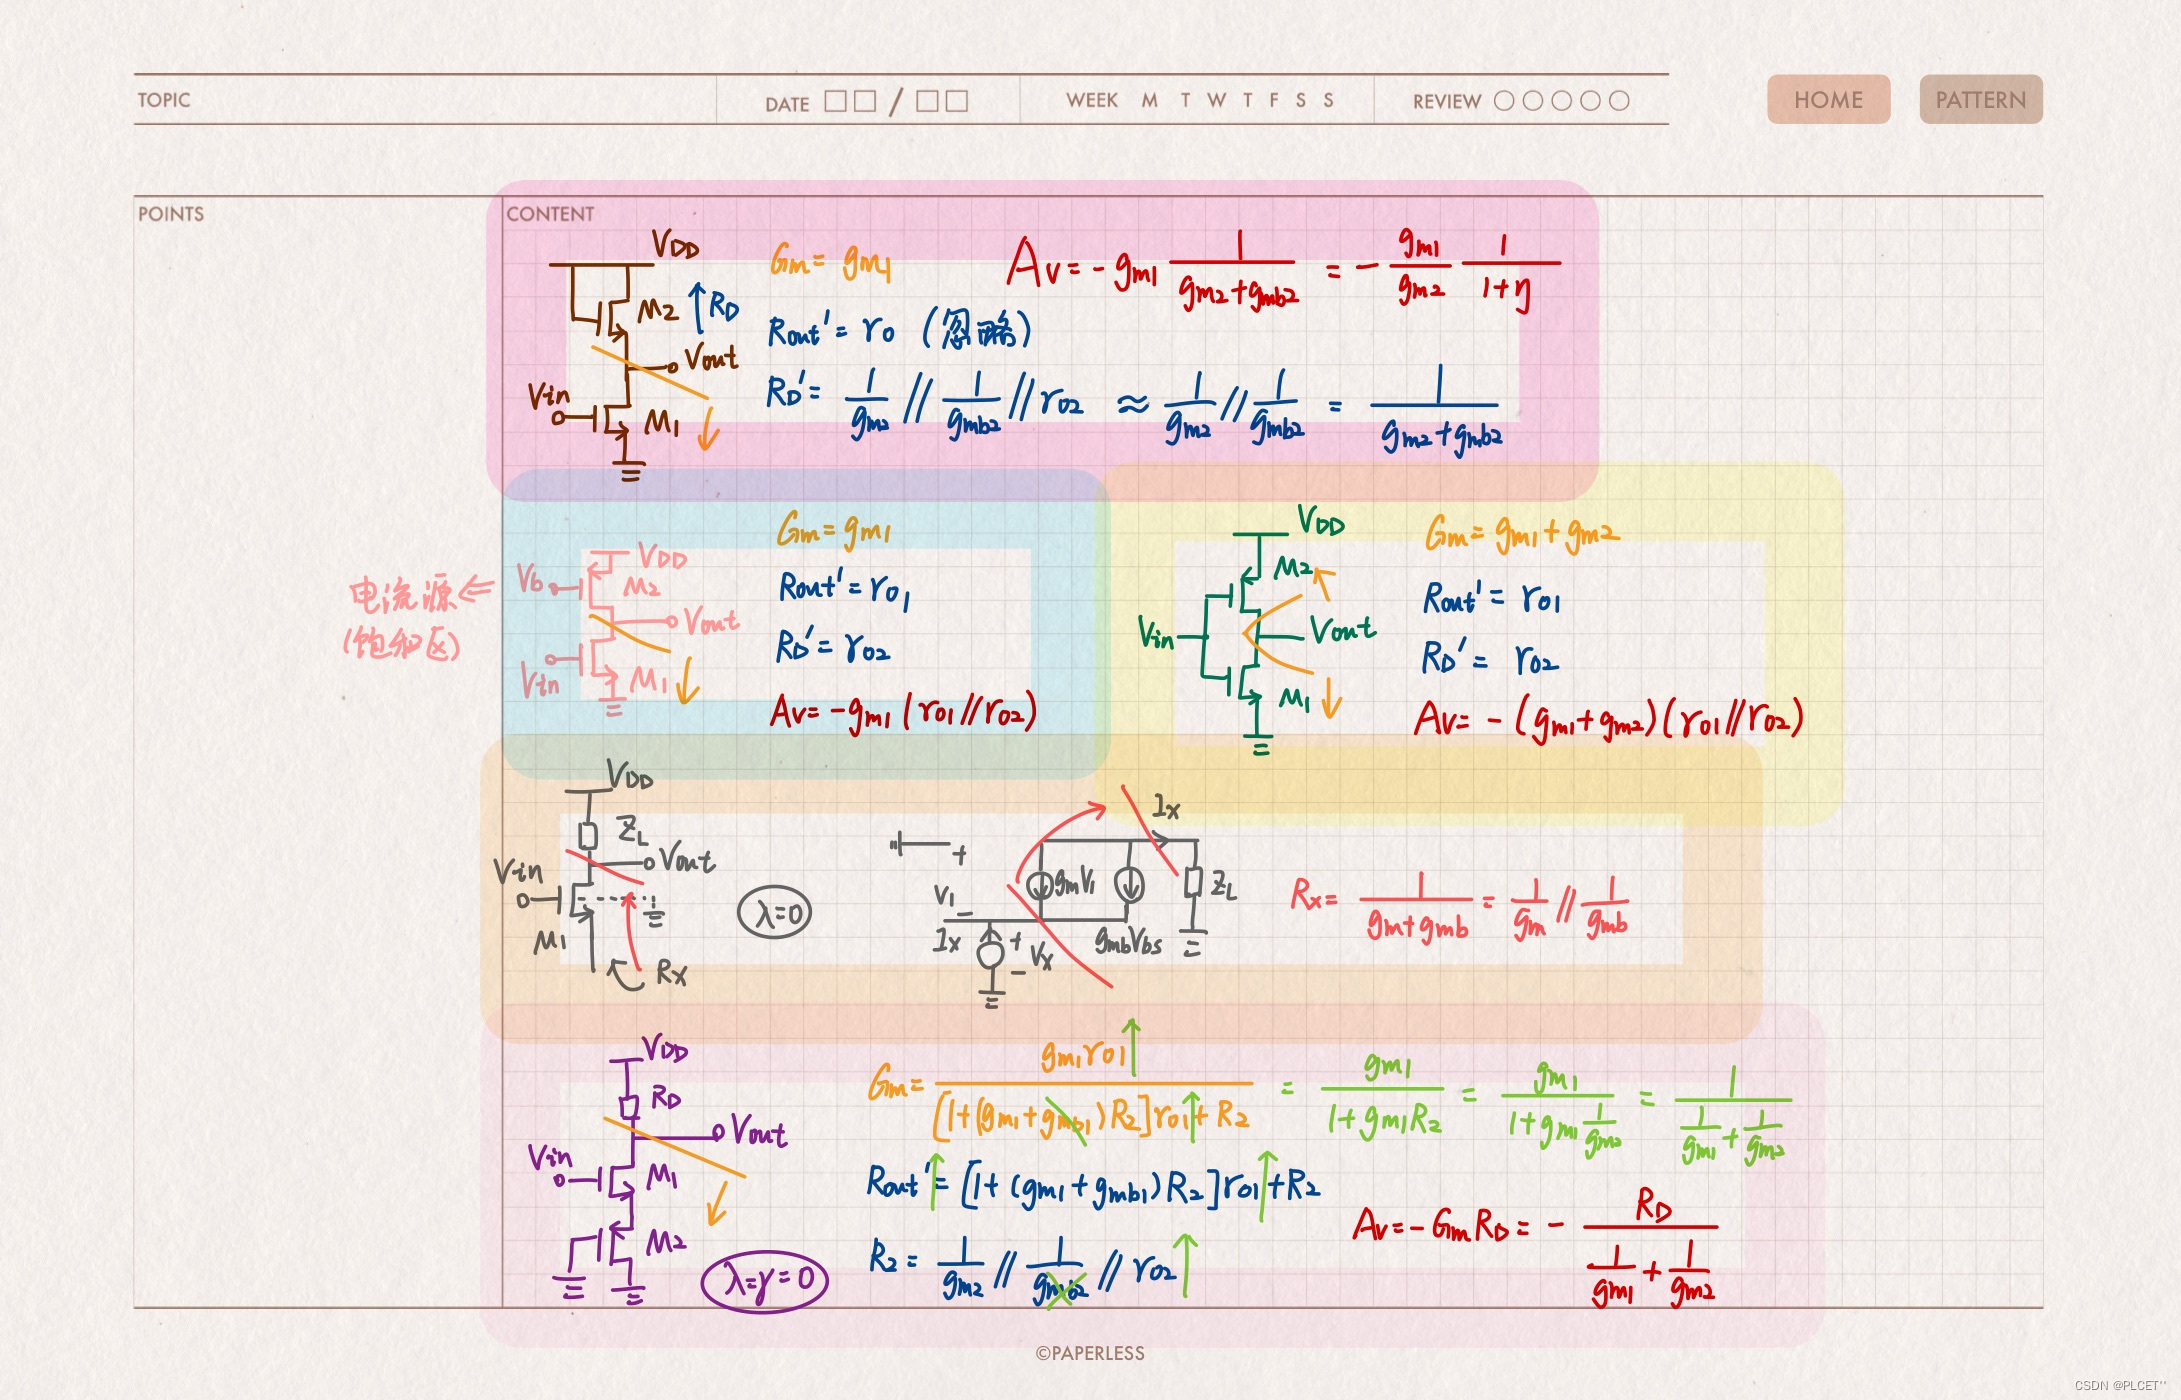 TOPIC
DATE □□ / □□
WEEK M T W T F S S
REVIEW ○○○○○
HOME
PATTERN
POINTS
CONTENT
VDD
M2
RD
Vout
Vin
M1
Gm = gm1
Av = - gm1 1/(gm2+gmb2) = - gm1/gm2 1/(1+η)
Rout' = ro (忽略)
RD' = 1/gm2 // 1/gmb2 // ro2 ≈ 1/gm2 // 1/gmb2 = 1/(gm2+gmb2)
电流源 ⇐
(饱和区)
VDD
Vb
M2
Vout
M1
Vin
Gm = gm1
Rout' = ro1
RD' = ro2
Av = -gm1 (ro1//ro2)
VDD
M2
Vin
Vout
M1
Gm = gm1 + gm2
Rout' = ro1
RD' = ro2
Av = - (gm1+gm2)(ro1//ro2)
VDD
ZL
Vout
Vin
M1
Rx
λ=0
Ix
+
gmV1
ZL
V1
-
Ix
+
Vx
-
gmbVbs
Rx = 1/(gm+gmb) = 1/gm // 1/gmb
VDD
RD
Vout
Vin
M1
M2
λ=γ=0
Gm = gm1ro1/([1+(gm1+gmb1)R2]ro1+R2) = gm1/(1+gm1R2) = gm1/(1+gm1 1/gm2) = 1/(1/gm1 + 1/gm2)
Rout' = [1+(gm1+gmb1)R2]ro1+R2
R2 = 1/gm2 // 1/gmb2 // ro2
Av = - GmRD = - RD/(1/gm1 + 1/gm2)
©PAPERLESS
CSDN @PLCET''